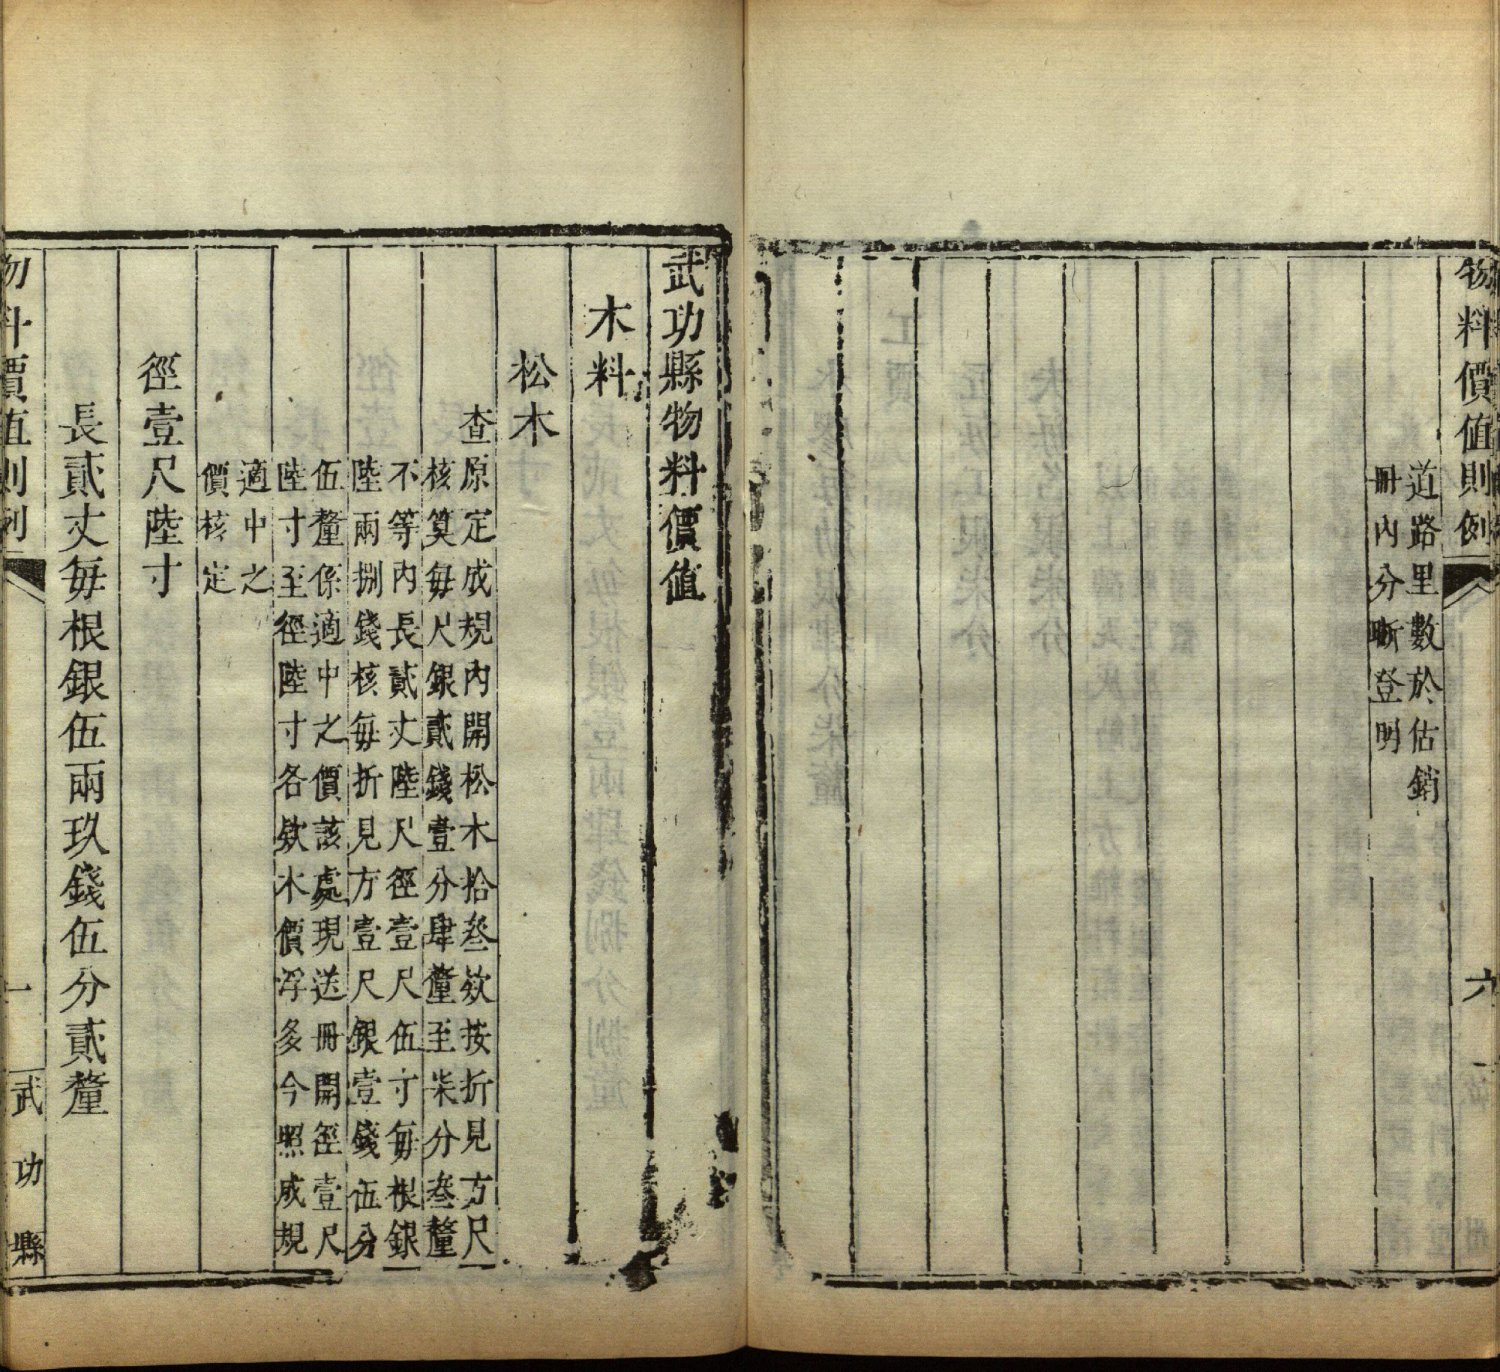 物料價值則例
六
道路里數於估銷
冊內分晰登明
武功縣物料價值
木料
松木
查原定成規內開松木拾叁欵按折見方尺
核算每尺銀貳錢壹分肆釐至柒分叁釐
不等內長貳丈陸尺徑壹尺伍寸每根銀
陸兩捌錢核每折見方壹尺銀壹錢伍分
伍釐係適中之價該處現送冊開徑壹尺
陸寸至徑陸寸各欵木價浮多今照成規
適中之
價核定
徑壹尺陸寸
長貳丈每根銀伍兩玖錢伍分貳釐
物料價值則例
一
武功縣